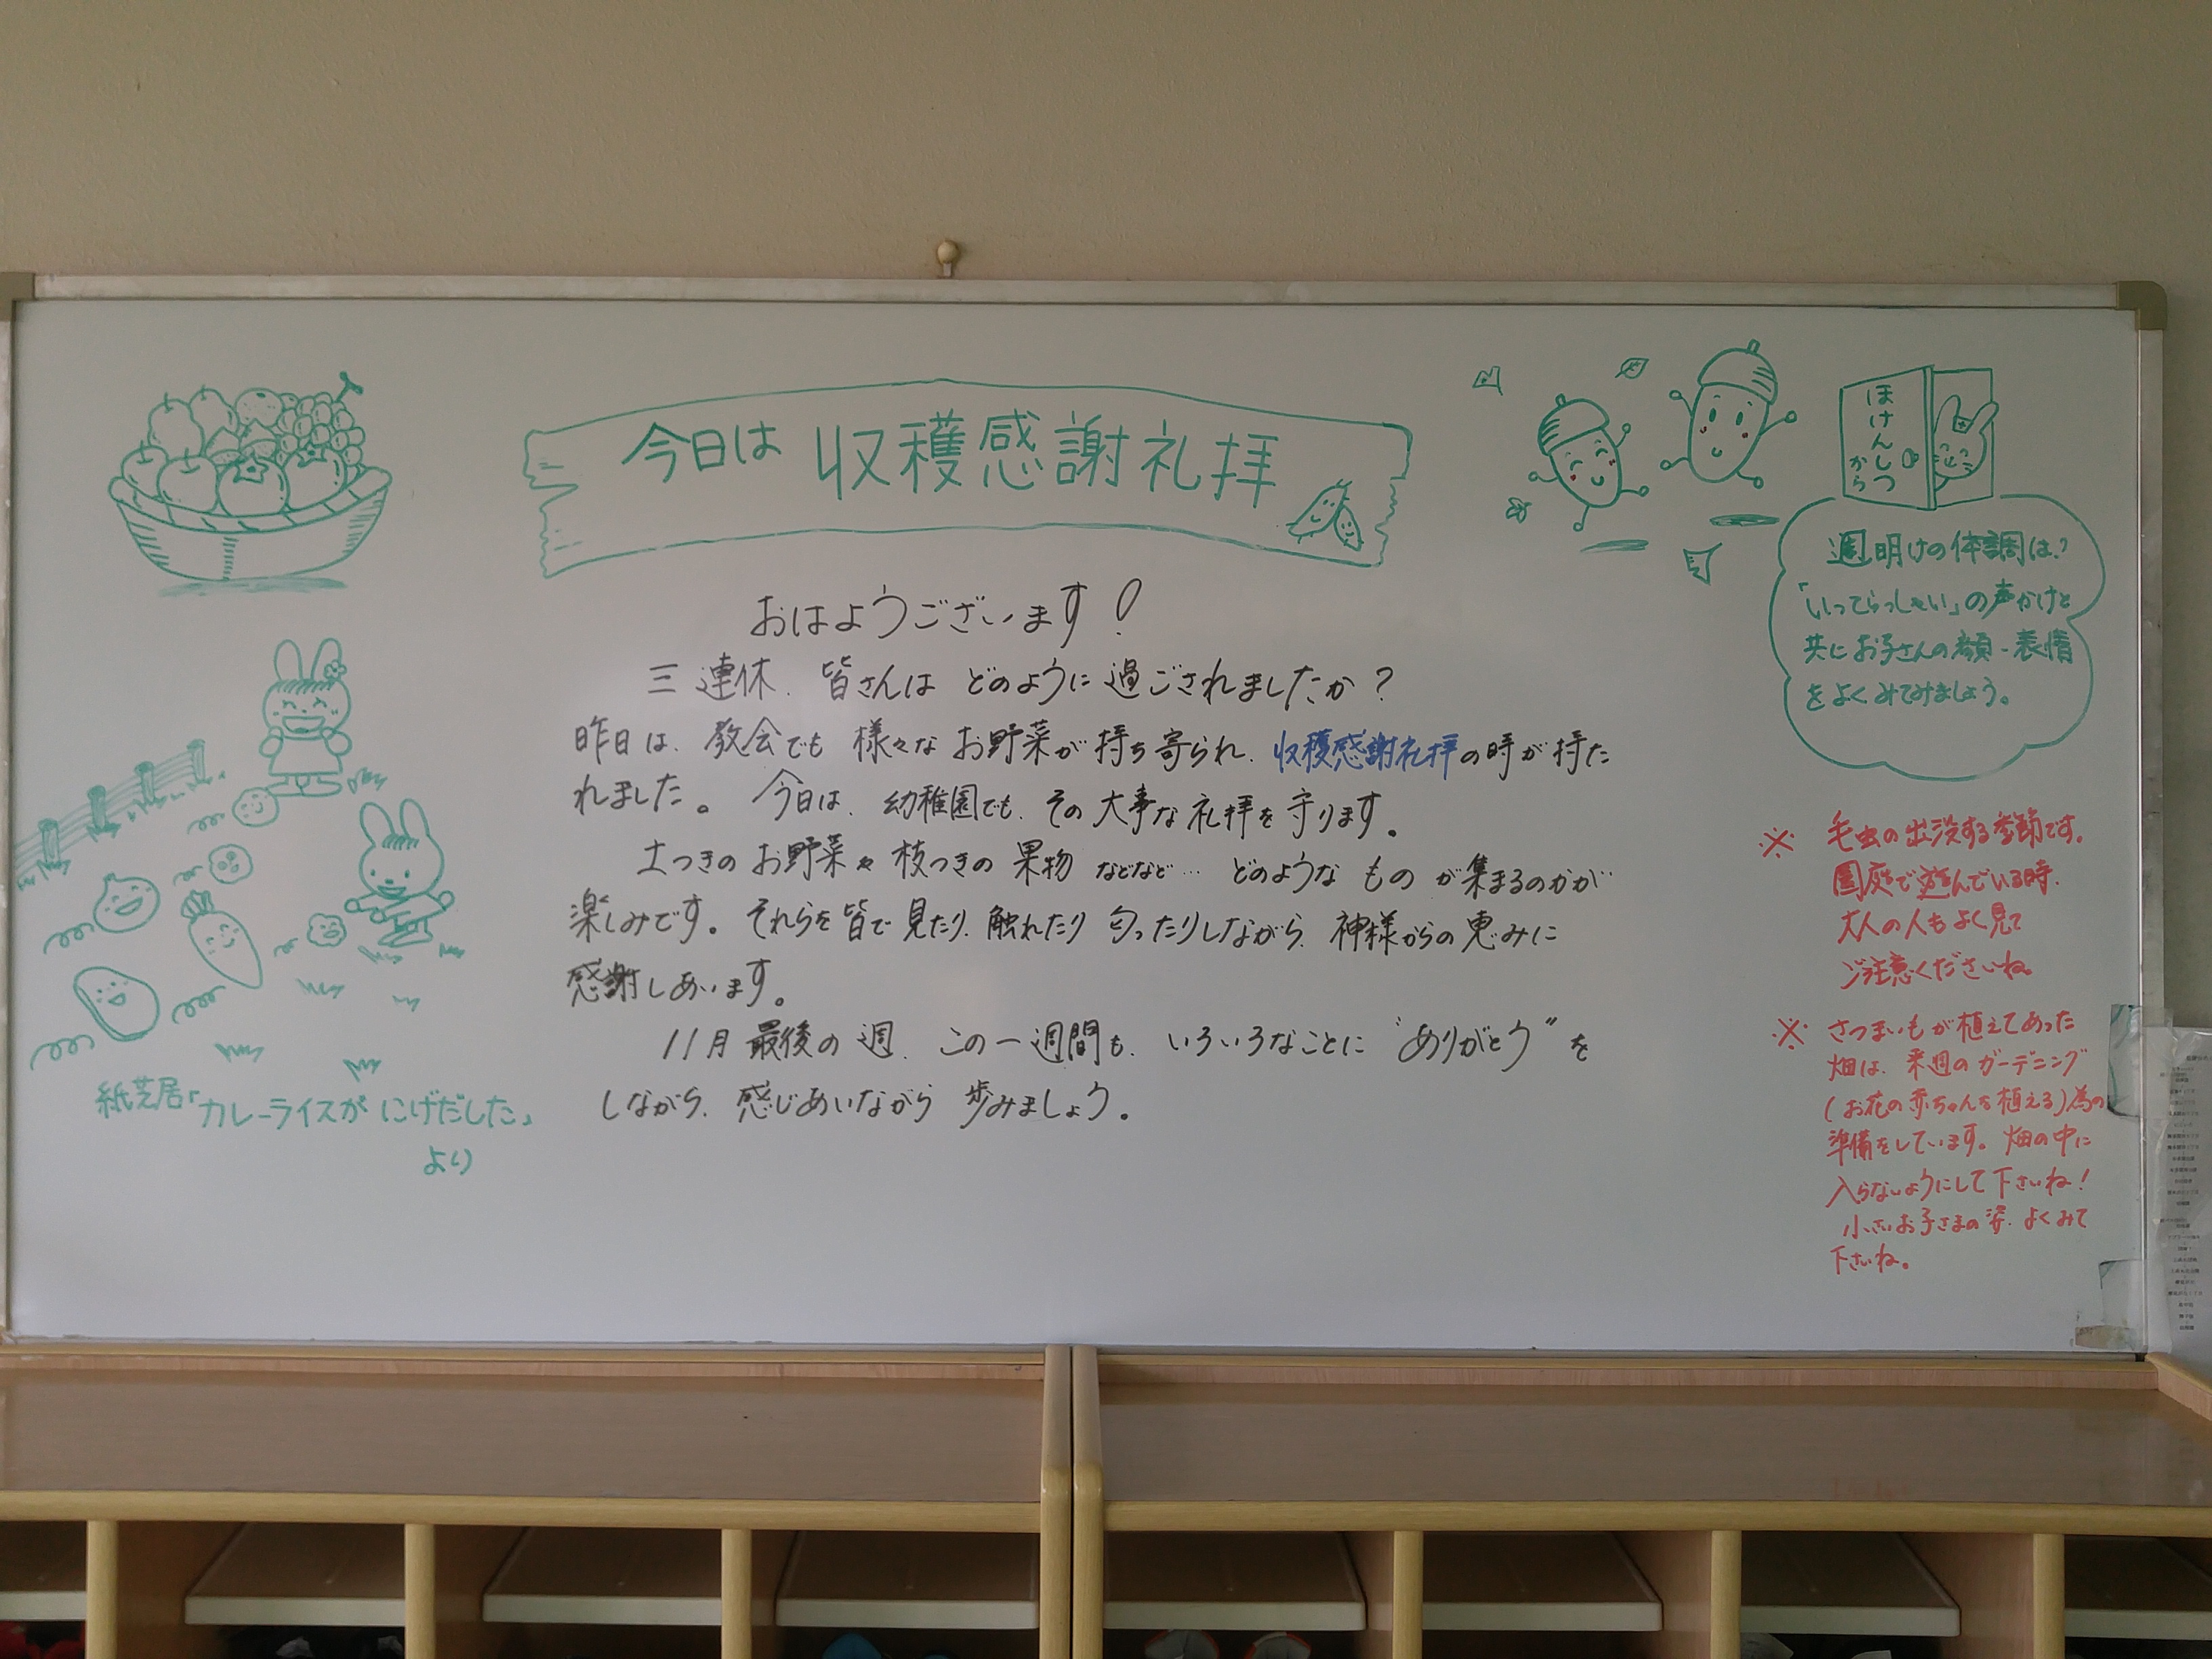 今日は 収穫感謝礼拝
おはようございます！
三連休、皆さんは どのように 過ごされましたか？
昨日は、教会でも 様々な お野菜が 持ち寄られ、収穫感謝礼拝の時が持た
れました。 今日は、幼稚園でも、その大事な礼拝を守ります。
土つきの お野菜や 枝つきの 果物 などなど… どのような ものが集まるのかが
楽しみです。それらを皆で見たり、触れたり 匂ったりしながら、神様からの恵みに
感謝しあいます。
11月 最後の週、この一週間も、いろいろなことに “ありがとう” を
しながら、感じあいながら 歩みましょう。
紙芝居「カレーライスが にげだした」
より
ほけんしつ
から
週明けの体調は？
「いってらっしゃい」の声かけと
共にお子さんの顔・表情
をよくみてみましょう。
※ 毛虫の出没する季節です。
園庭で遊んでいる時、
大人の人もよく見て
ご注意くださいね。
※ さつまいもが植えてあった
畑は、来週のガーデニング
（お花の赤ちゃんを植える）為の
準備をしています。畑の中に
入らないようにして下さいね！
小さいお子さまの姿、よくみて
下さいね。